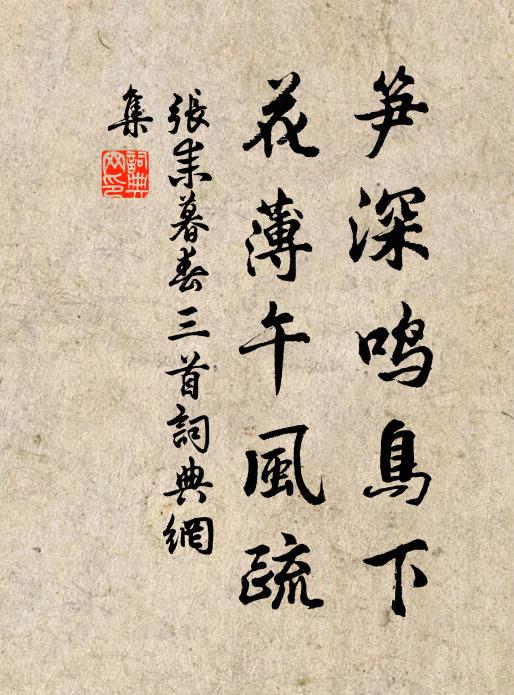 笋深鸣鳥下
花薄午風疏
張耒暮春三首詞典網
集
詞典
网印